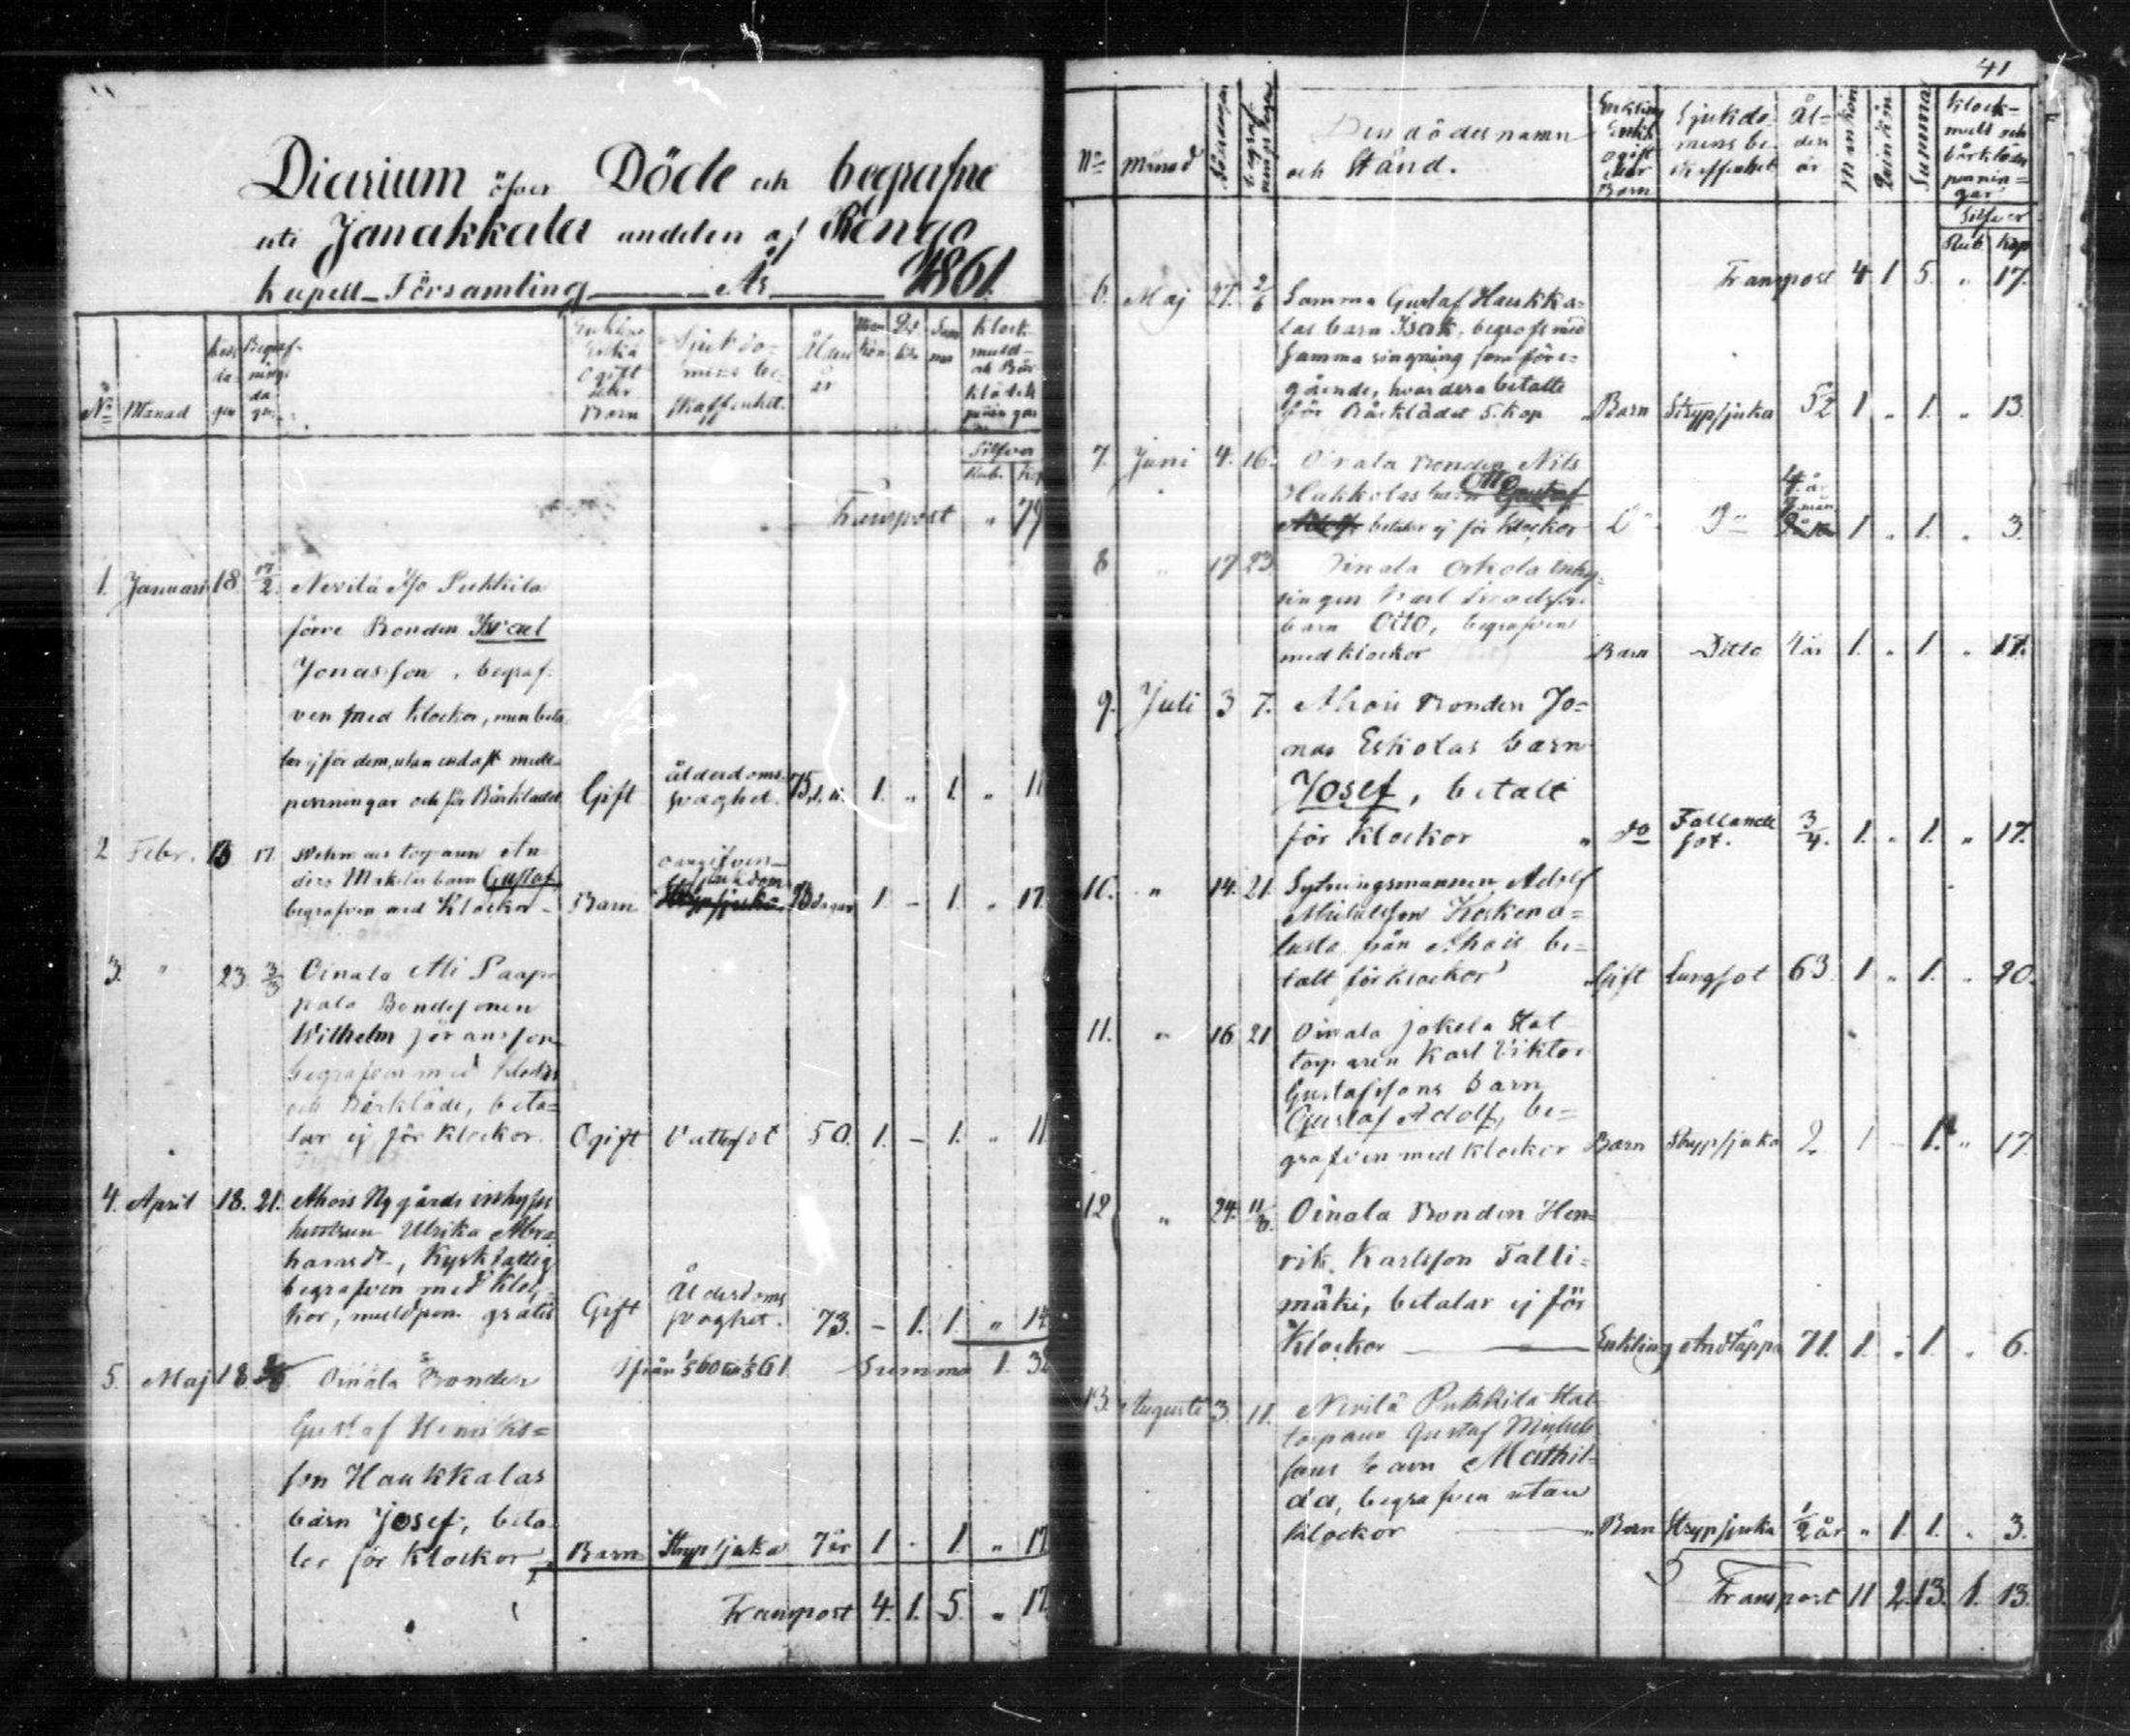 Diarium öfver Döde och begrafne
uti Janakkala andelen af Rengo
kapell-Församling År 1861.
No Månad
Silfver
Rub. Kop
Transport " 79
1. Januari 18. 17/2. Nevilä
förre Bonden Israel
Jonasson, begraf-
ven med klockor, men beta-
lar ej för dem, utan endast mull-
penningar och för Bårklädet Gift ålderdoms-svaghet. 75 1. " 1. " 11
2 Febr. 13 17. An-
ders barn Gustaf
begrafven med Klockor - Barn oangifven sjukdom dagar 1 - 1. " 17.
3. " 23 3/3 Oinala Ali Paap-
pala Bondesonen
Wilhelm Göransson
begrafven med klockor
och Bårkläde, beta-
lar ej för klockor. Ogift Vattusot 50. 1. - 1. " 11
4. April 18. 21. Ahois Nygårds inhyses
hustrun Ulrika Abra-
hamsdr, Kyrkfattig
begrafven med Kloc-
kor, mullpen. gratis Gift Ålderdoms svaghet. 73. - 1. 1. " 14
från 1/5 60 till 1/5 61 Summa 1. 32
5. Maj 18. Oinala Bonden
Gustaf Henriks=
son Haukkalas
barn Josef, beta-
ler för klockor, Barn Strypsjuka 7 år 1 . 1 " 17
Transport 4. 1. 5. " 17.
41
No Månad Dödsdagen begrafningsdagen Den dödes namn
och Stånd. Enkling Enka ogift eller Barn Sjukdomens beskaffenhet Ålder år Mankön Qvinkön Summa klockmull och bårklädespenningar
Silfver
Rub. Kop
Transport 4 1 5. " 17.
6. Maj 27. 2/6 Samma Gustaf Haukka-
las barn Isak, begrafs med
samma ringning som före-
gående, hvardera betalte
för Bårklädet 5. kop Barn Strypsjuka 5 1/2 1 " 1. " 13.
7. Juni 4. 16. Oinala Bonden Nils
Hakkolas barn Otto Gustaf
Adolf betalar ej för klockor Do Do 4 år 7 mån 1 " 1. " 3.
8 " 17 23. Oinala Orhola inhy-
singen Karl
barn Otto, begrafven
med klockor Barn Ditto 4 år 1. " 1 " 17.
9. Juli 3 7. Ahois Bonden Jo=
nas Eskolas barn
Josef, betalt
för klockor " do Fallandesot. 3/4. 1. " 1. " 17.
10. " 14. 21. Sytningsmannen Adolf
Michelsson Koskena=
lusta från Ahois be=
talt för klockor Gift Lungsot 63. 1 " 1. " 20.
11. " 16 21 Oinala Jokela Stat-
torparen Karl Viktor
Gustafssons barn
Gustaf Adolf, be=
grafven med klockor Barn Strypsjuka 2. 1 - 1. " 17.
12 " 24. 11/8. Oinala Bonden Hen-
rik Karlsson Talli=
mäki, betalar ej för
klockor Enkling Andtäppa 71. 1. " 1. " 6.
13. Augusti 3. 11. Nevilä Pukkila Stat-
torparen Gustaf Michels-
sons barn Mathil-
da, begrafven utan
klockor " Barn Strypsjuka 1/2 år " 1. 1. " 3.
Transport 11 2. 13. 1. 13.